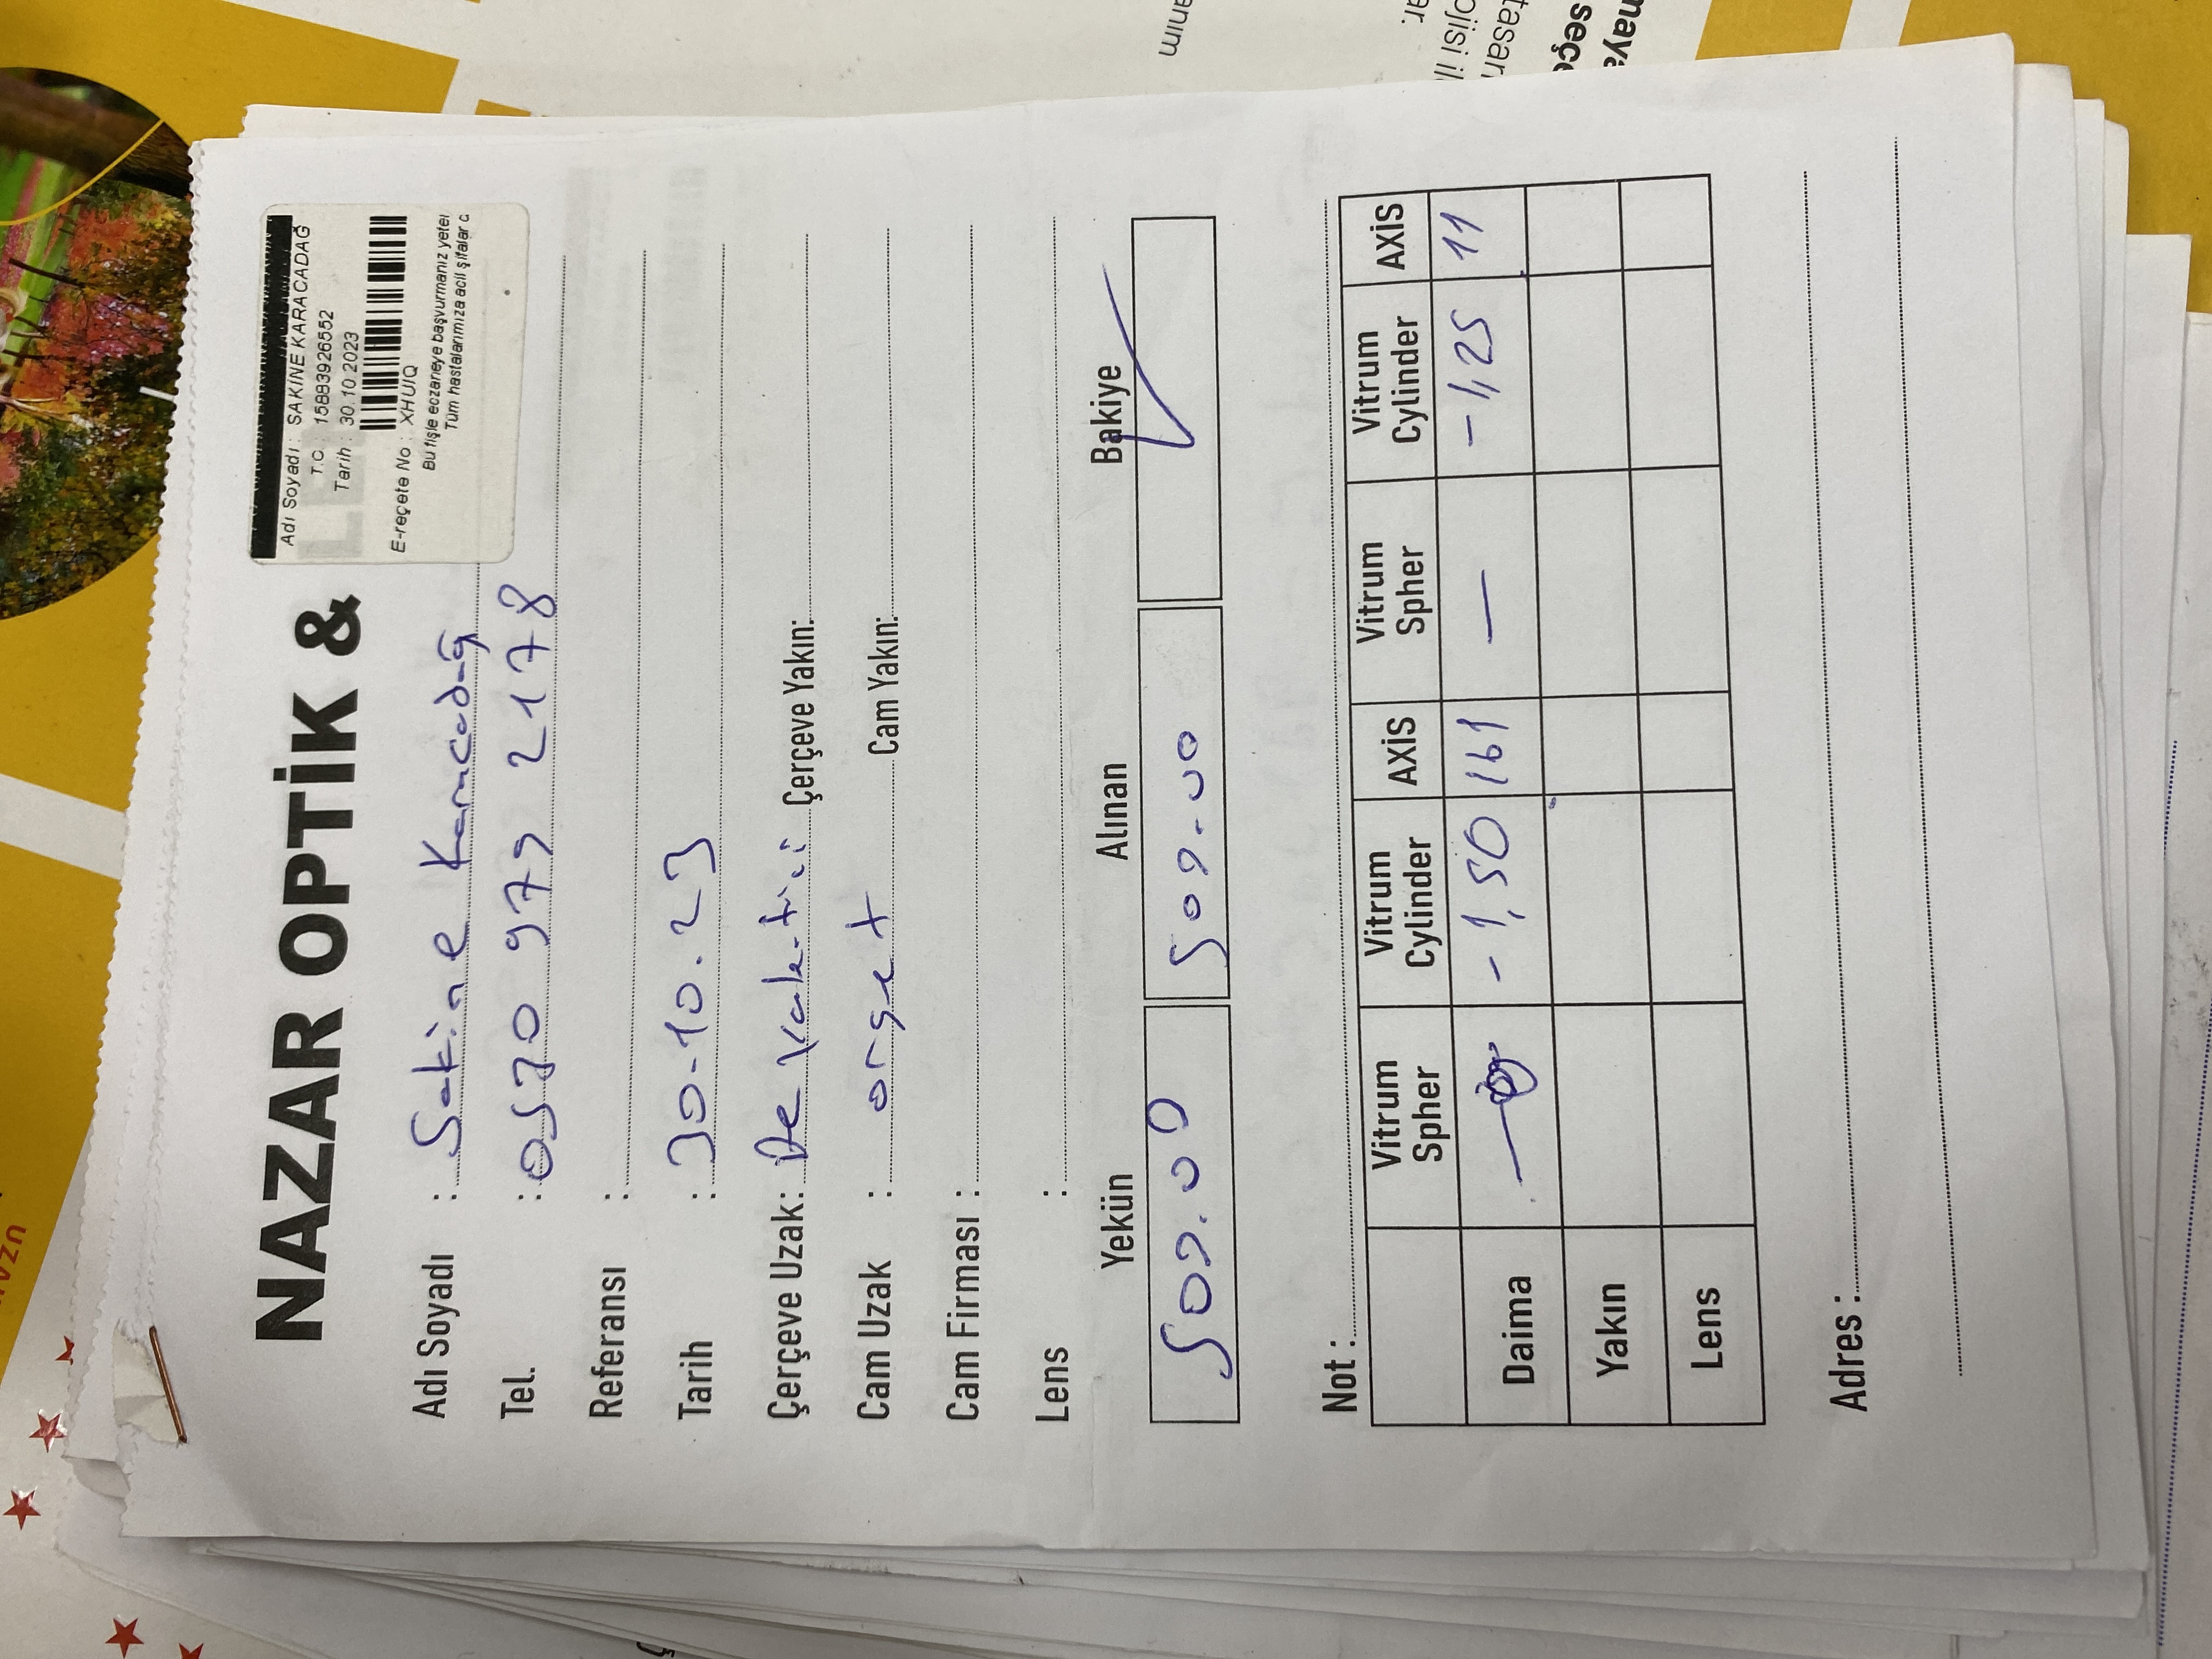 NAZAR OPTİK &
Adı Soyadı : SAKİNE KARACADAĞ
T.C. : 15883926552
Tarih : 30.10.2023
E-reçete No : XHUIQ
Bu fişle eczaneye başvurmanız yeter
Tüm hastalarımıza acil şifalar d
Adı Soyadı : Sakine Karacadağ
Tel. : 0530 979 2178
Referansı :
Tarih : 30-10.23
Çerçeve Uzak: De Çerçeve Yakın:
Cam Uzak : Cam Yakın:
Cam Firması :
Lens :
Yekün Alınan Bakiye
500.00 500.00 ✓
Not :
Vitrum Spher Vitrum Cylinder AXİS Vitrum Spher Vitrum Cylinder AXİS
Daima — -1,50 161 — -1,25 11
Yakın
Lens
Adres :